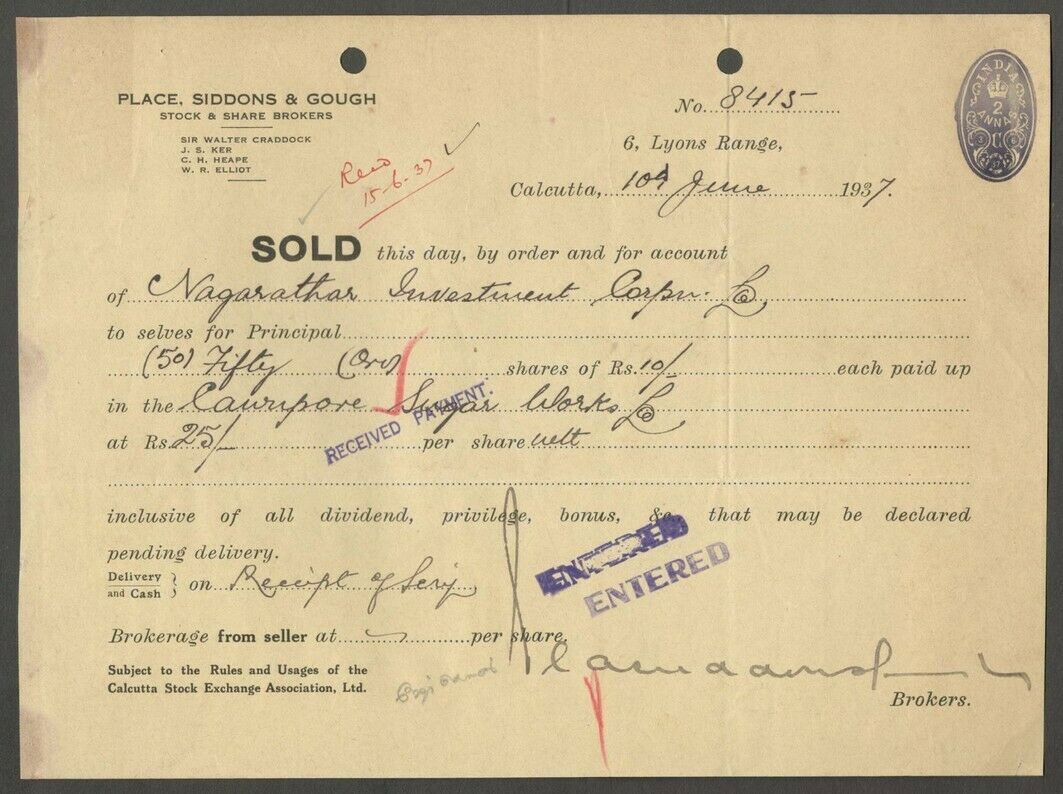 PLACE, SIDDONS & GOUGH
STOCK & SHARE BROKERS
SIR WALTER CRADDOCK
J. S. KER
C. H. HEAPE
W. R. ELLIOT
No. 8415
INDIA
2
ANNAS
6, Lyons Range,
15-6-37
Calcutta, 10th June 1937.
SOLD this day, by order and for account
of Nagarathar Investment Corpn. Ld,
to selves for Principal
(50) Fifty (Ord) shares of Rs. 10/- each paid up
in the Cawnpore Sugar Works Ld,
at Rs. 25/- per share nett
RECEIVED PAYMENT.
inclusive of all dividend, privilege, bonus, &c that may be declared
pending delivery.
ENTERED
ENTERED
Delivery and Cash } on Receipt of
Brokerage from seller at per share.
Subject to the Rules and Usages of the
Calcutta Stock Exchange Association, Ltd.
Brokers.